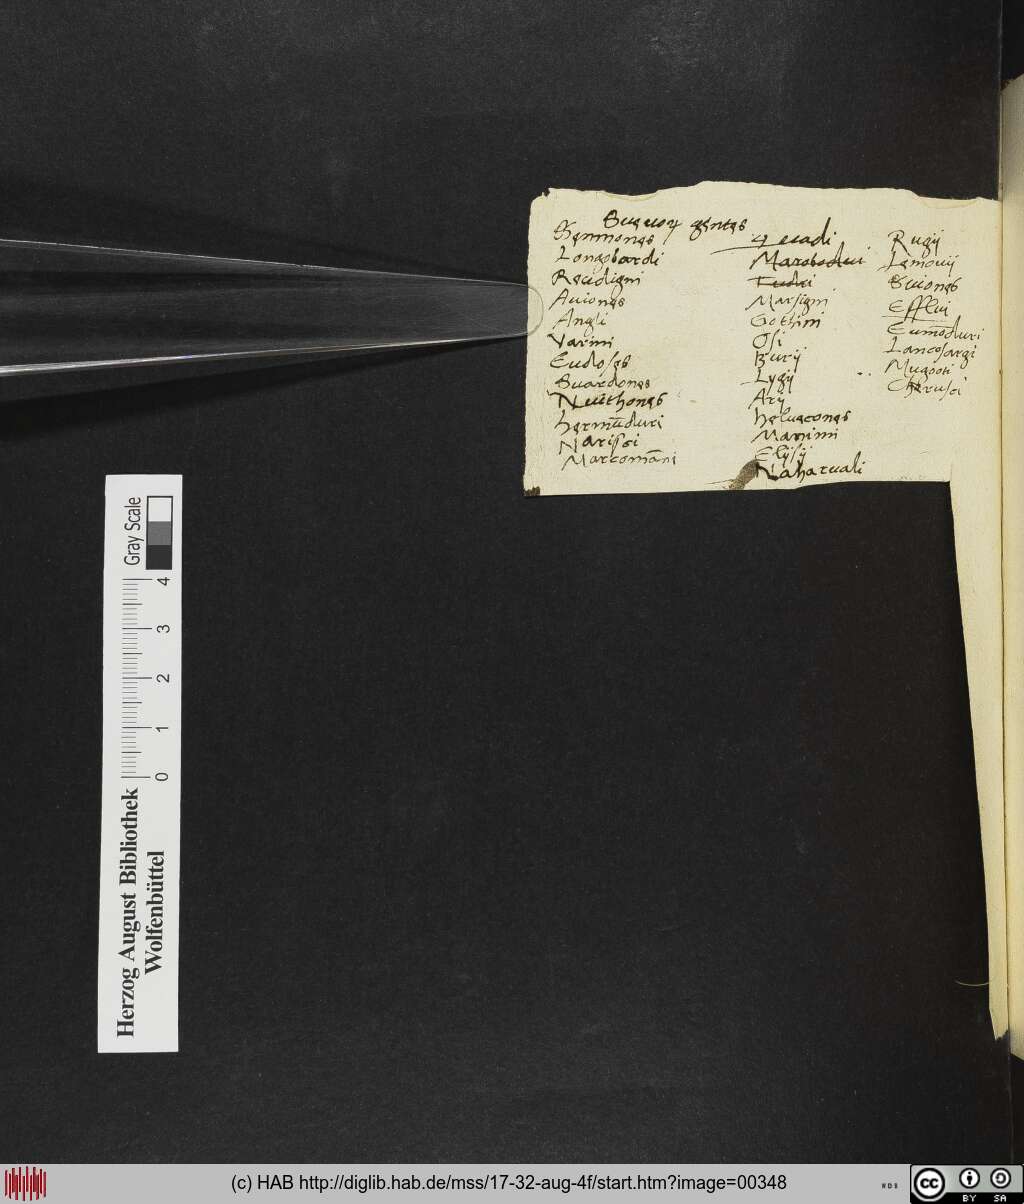 Sueuoꝝ gentes
Senmones
Longobardi
Reudigni
Auiones
Angli
Varini
Eudoses
Suardones
Nuithones
hermūduri
Narisci
Marcomāni
Quadi
Marobodui
Tudri
Marsigni
Gothini
Osi
Burij
Lygij
Arij
heluecones
Manimi
Elysij
Naharuali
Rugij
Lemouij
Suiones
Efflui
Eumōduri
Lancosargi
Cherusci
Gray Scale
4
3
2
1
0
Herzog August Bibliothek
Wolfenbüttel
(c) HAB http://diglib.hab.de/mss/17-32-aug-4f/start.htm?image=00348
WDB
cc
BY SA